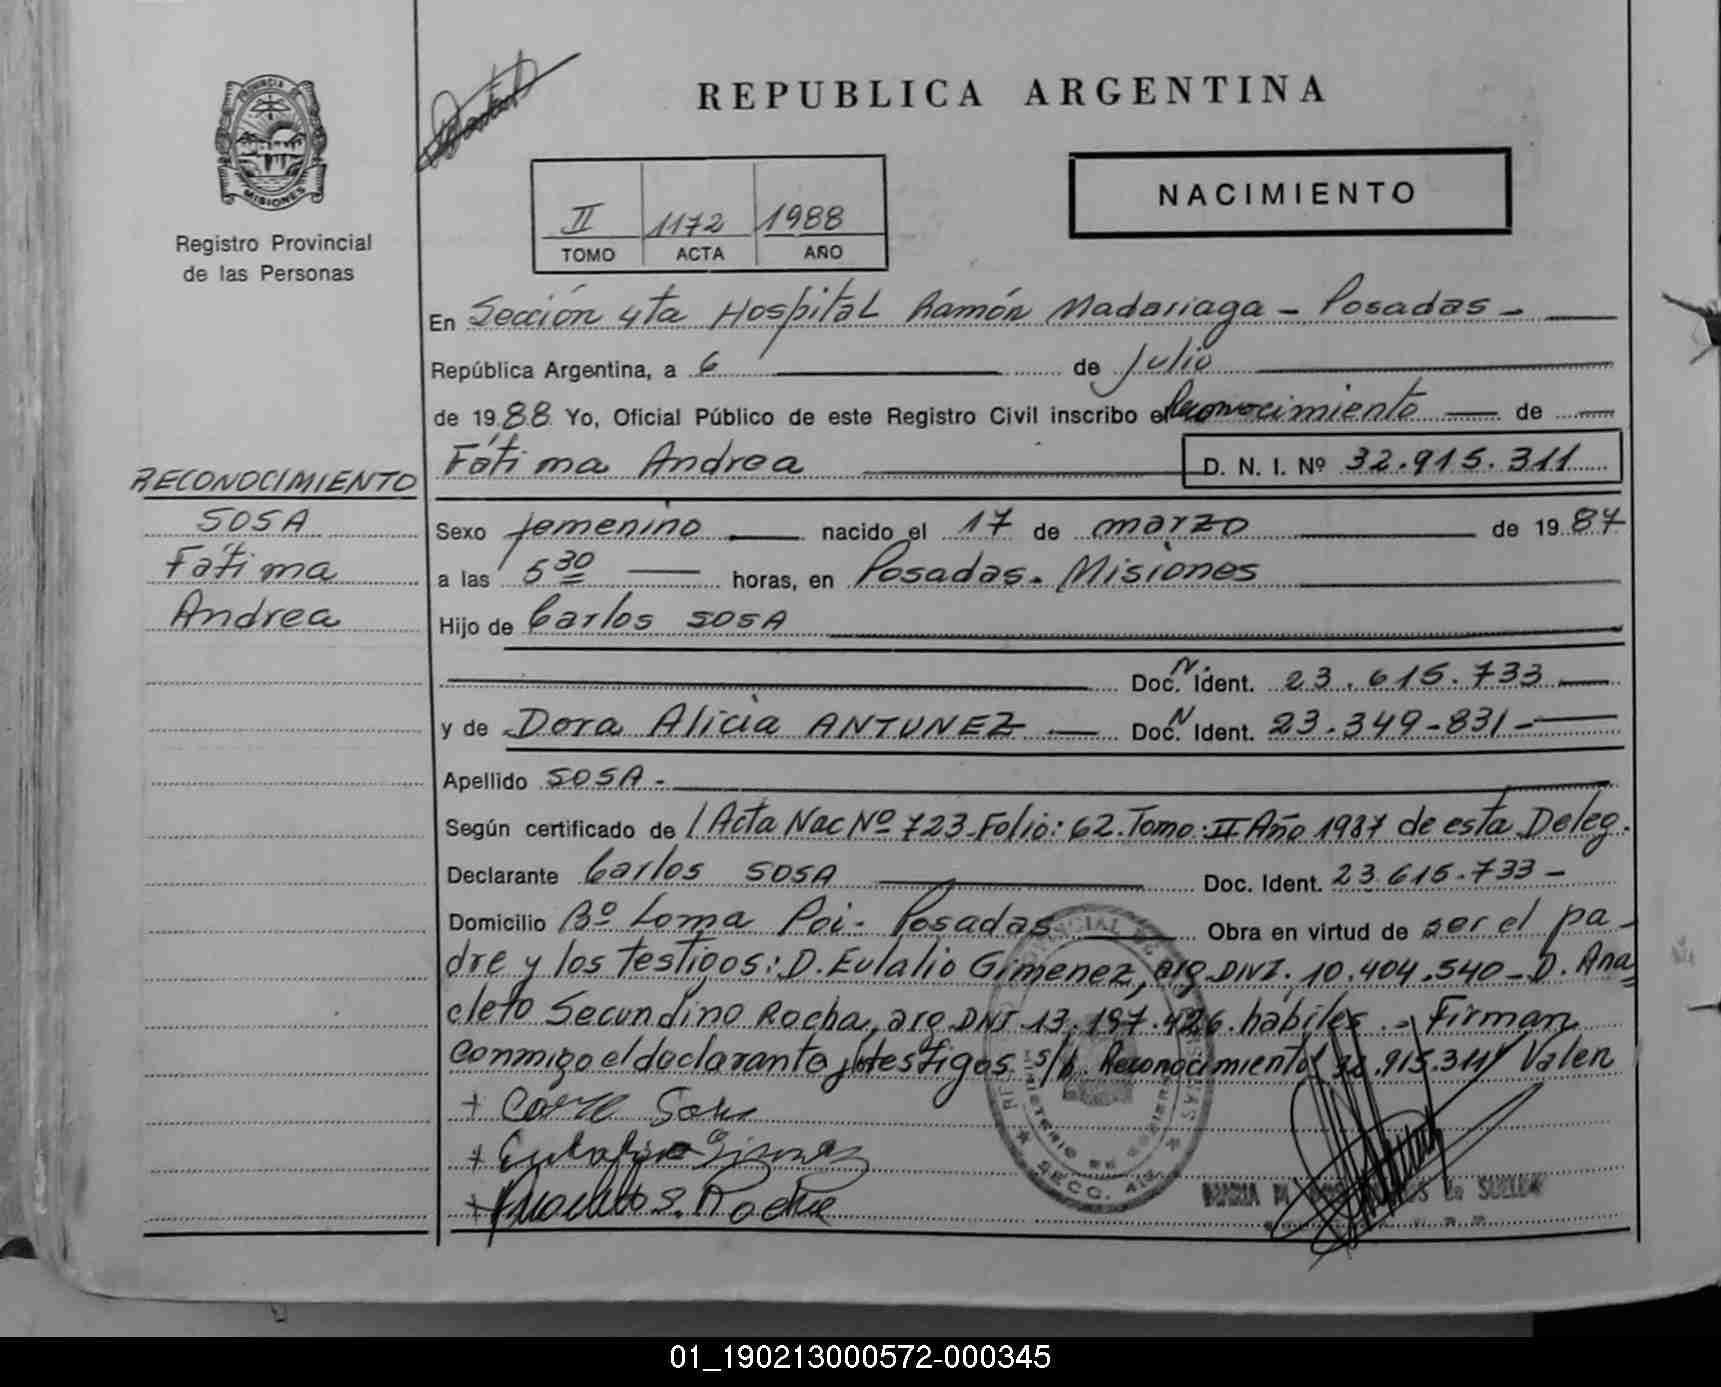 REPUBLICA ARGENTINA
PROVINCIA DE
MISIONES
Registro Provincial
de las Personas
II 1172 1988
TOMO ACTA AÑO
NACIMIENTO
En Sección 4ta Hospital Ramón Madariaga - Posadas -
República Argentina, a 6 de Julio
de 1988 Yo, Oficial Público de este Registro Civil inscribo el Reconocimiento de
Fátima Andrea D. N. I. Nº 32.915.311
RECONOCIMIENTO
SOSA
Fátima
Andrea
Sexo femenino nacido el 17 de marzo de 1987
a las 5 30 horas, en Posadas. Misiones
Hijo de Carlos SOSA
Doc. N Ident. 23.615.733
y de Dora Alicia ANTUNEZ Doc. N Ident. 23.349-831-
Apellido SOSA -
Según certificado de Acta Nac Nº 723 Folio: 62. Tomo: II Año 1987 de esta Deleg.
Declarante Carlos SOSA Doc. Ident. 23.615.733 -
Domicilio Bº Loma Poi - Posadas Obra en virtud de ser el pa-
dre y los testigos: D. Eulalio Gimenez, arg. DNI. 10.404.540 - D. Ana
cleto Secundino Rocha, arg DNI 13.197.426. habiles. - Firman
conmigo el declarante y testigos s/b. Reconocimiento 32.915.311 Valen
+ Sosa
+ Eulalio Gimenez
+ S. Rocha
SECC. 4ta
01_190213000572-000345